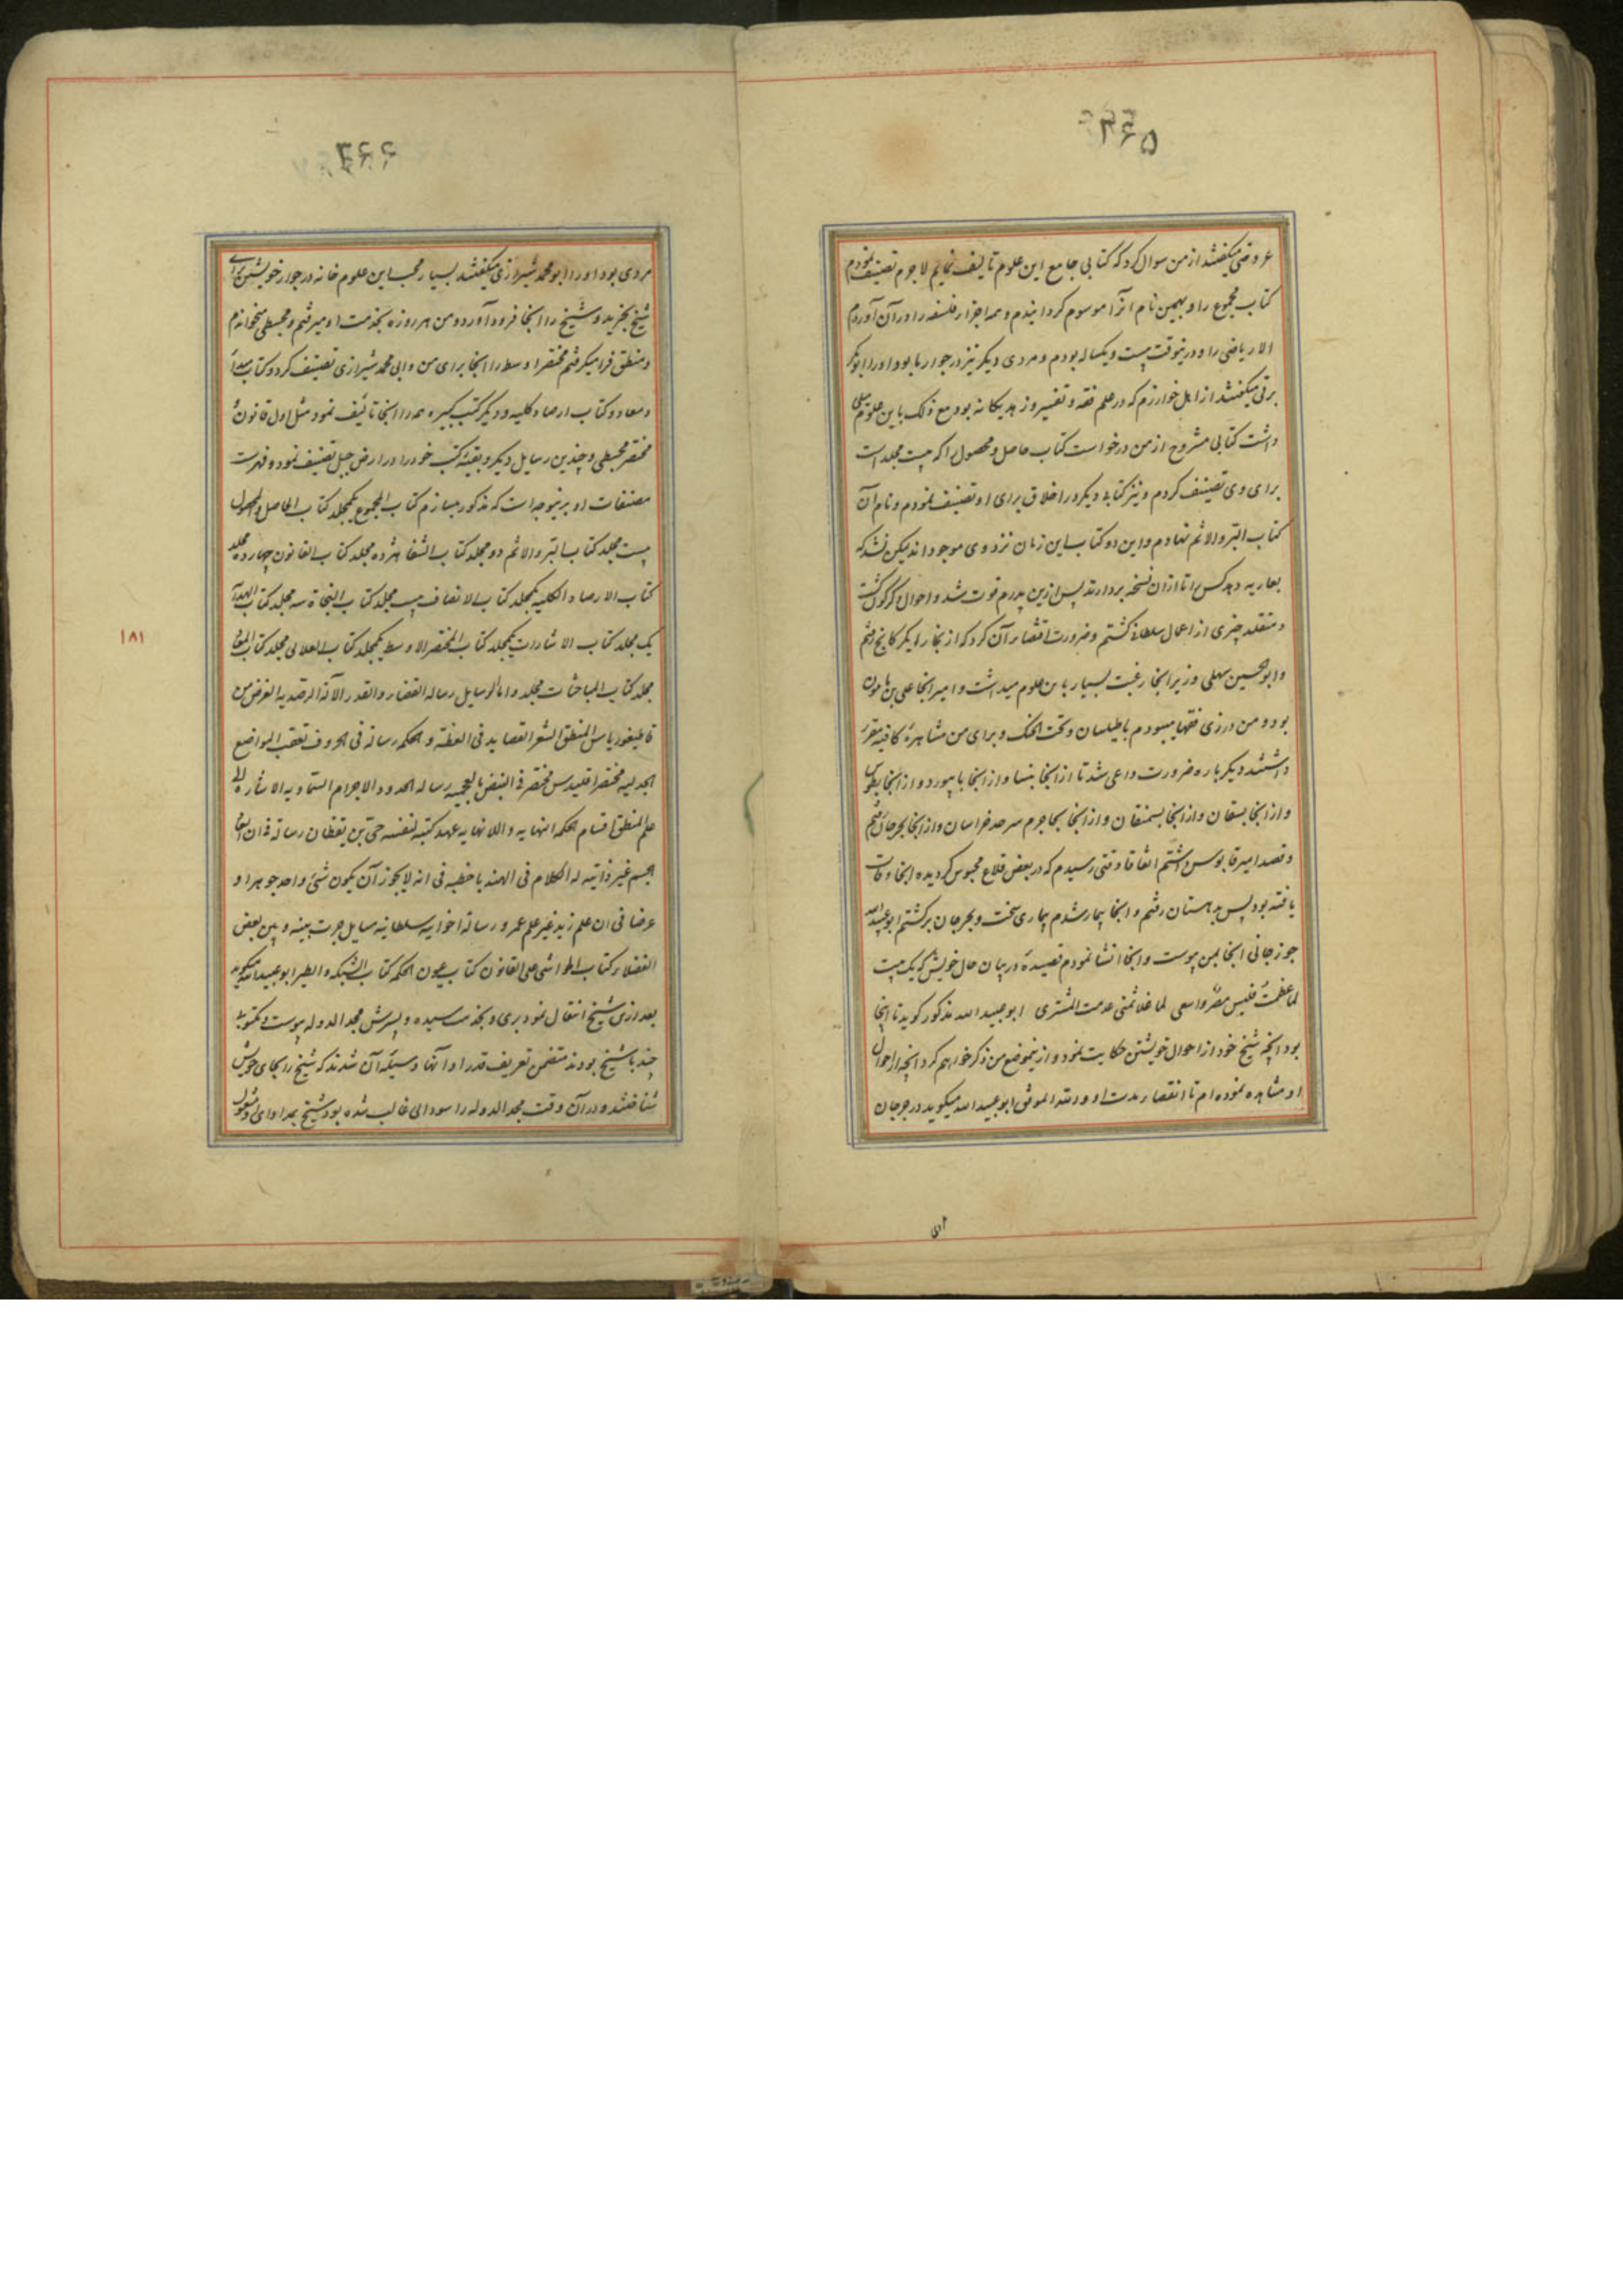 عروضی میگفتند از من سوال کرد که کتابی جامع این علوم تالیف نمایم لاجرم تصنیف نمودم
کتاب مجموع را و بهمین نام آنرا موسوم گردانیدم و همه اجزا فلسفه را در آن آوردم
الا ریاضی را و درینوقت بیست و یکساله بودم و مردی دیگر نیز در جوار ما بود او را ابوبکر
برقی میگفتند از اهل خوارزم که در علم فقه و تفسیر و زهد یگانه بود مع ذلک باین علوم میلی
داشت کتابی مشروح از من درخواست کتاب حاصل و محصول را که بیست مجلد است
برای وی تصنیف کردم و نیز کتابی دیگر در اخلاق برای او تصنیف نمودم و نام آن
کتاب البر و الاثم نهادم و این دو کتاب این زمان نزد وی موجوداند لیکن نشد که
بعاریه دهد کس را تا ازان نسخه بردارند پس ازین پدرم فوت شد و احوال دگرگون گشت
و متقلد چیزی از اعمال سلطانی گشتم و ضرورت اقتضاء آن کرد که از بخارا بکرکانج رفتم
و ابوالحسین سهلی وزیر آنجا رغبت بسیار باین علوم میداشت و امیر آنجا علی بن مامون
بود و من در زی فقها میبودم با طیلسان و تحت الحنک و برای من مشاهره کافیه مقرر
داشتند دیگر باره ضرورت داعی شد تا از آنجا بنسا و از آنجا بابیورد و از آنجا بطوس
و از آنجا بسقان و از آنجا بسمنقان و از آنجا بجاجرم سرحد خراسان و از آنجا بجرجان رفتم
و قصد امیر قابوس داشتم اتفاقا وقتی رسیدم که در بعض قلاع محبوس گردیده آنجا وفات
یافته بود پس بدهستان رفتم و آنجا بیمار شدم بیماری سخت و بجرجان برگشتم ابوعبید الله
جوزجانی آنجا بمن پیوست و آنجا انشا نمودم قصیدهٔ در بیان حال خویش که یک بیت
لما عظمت فلیس مصر واسعی لما غلا ثمنی عدمت المشتری ابوعبید الله مذکور گوید تا اینجا
بود آنچه شیخ خود از احوال خویشتن حکایت نمود و ازینموضع من ذکر خواهم کرد آنچه از احوال
او مشاهده نموده ام تا انقضاء مدت او و الله الموفق ابوعبید الله میگوید در جرجان
مردی بود او را ابو محمد شیرازی میگفتند بسیار محب این علوم خانه در جوار خویشتن برای
شیخ بخرید و شیخ را آنجا فرود آورد و من هر روزه بخدمت او میرفتم و مجسطی میخواندم
و منطق فرا میگرفتم مختصر اوسط را آنجا برای من و ابی محمد شیرازی تصنیف کرد و کتاب مبدا
و معاد و کتاب ارصاد کلیه و دیگر کتب کبیره همه را آنجا تالیف نمود مثل اول قانون و
مختصر مجسطی و چندین رسایل دیگر و بقیهٔ کتب خود را در ارض جبل تصنیف نمود و فهرست
مصنفات او برینوجه است که مذکور میسازم کتاب المجموع یکمجلد کتاب الحاصل و المحصول
بیست مجلد کتاب البر و الاثم دو مجلد کتاب الشفا هژده مجلد کتاب القانون چهارده مجلد
کتاب الارصاد الکلیه یکمجلد کتاب الانصاف بیست مجلد کتاب النجاة سه مجلد کتاب الهدایة
یک مجلد کتاب الاشارات یکمجلد کتاب المختصر الاوسط یکمجلد کتاب العلائی مجلد کتاب
مجلد کتاب المباحثات مجلد و اما الرسایل رساله القضاء و القدر الآلة الرصدیه الغرض من
قاطیغوریاس المنطق الشعر القصاید فی العظة و الحکمه رسالة فی الحروف تعقب المواضع
الجدلیه مختصر اقلیدس مختصر فی النبض بالعجمیه رساله الحدود الاجرام السماویه الاشاره الی
علم المنطق اقسام الحکمه النهایه و اللانهایه عهد کتبه لنفسه حی بن یقظان رسالة فی ان ابعاد
الجسم غیر ذاتیه له الکلام فی الهندبا خطبه فی انه لایجوز ان یکون شئ واحد جوهرا و
عرضا فی ان علم زید غیر علم عمرو رسالة اخوانیه سلطانیه مسایل جرت بینه و بین بعض
الفضلا کتاب الحواشی علی القانون کتاب عیون الحکمه کتاب الشبکه و الطیر ابوعبید الله میگوید
بعد ازین شیخ انتقال نمود بری و بخدمت سیده و پسرش مجد الدوله پیوست و مکتوبی
چند با شیخ بودند متضمن تعریف قدر او آنها وسیلهٔ آن شدند که شیخ را بجای خویش
شناختند و در آن وقت مجد الدوله را سودایی غالب شده بود شیخ بمداوای او مشغول
۱۸۱